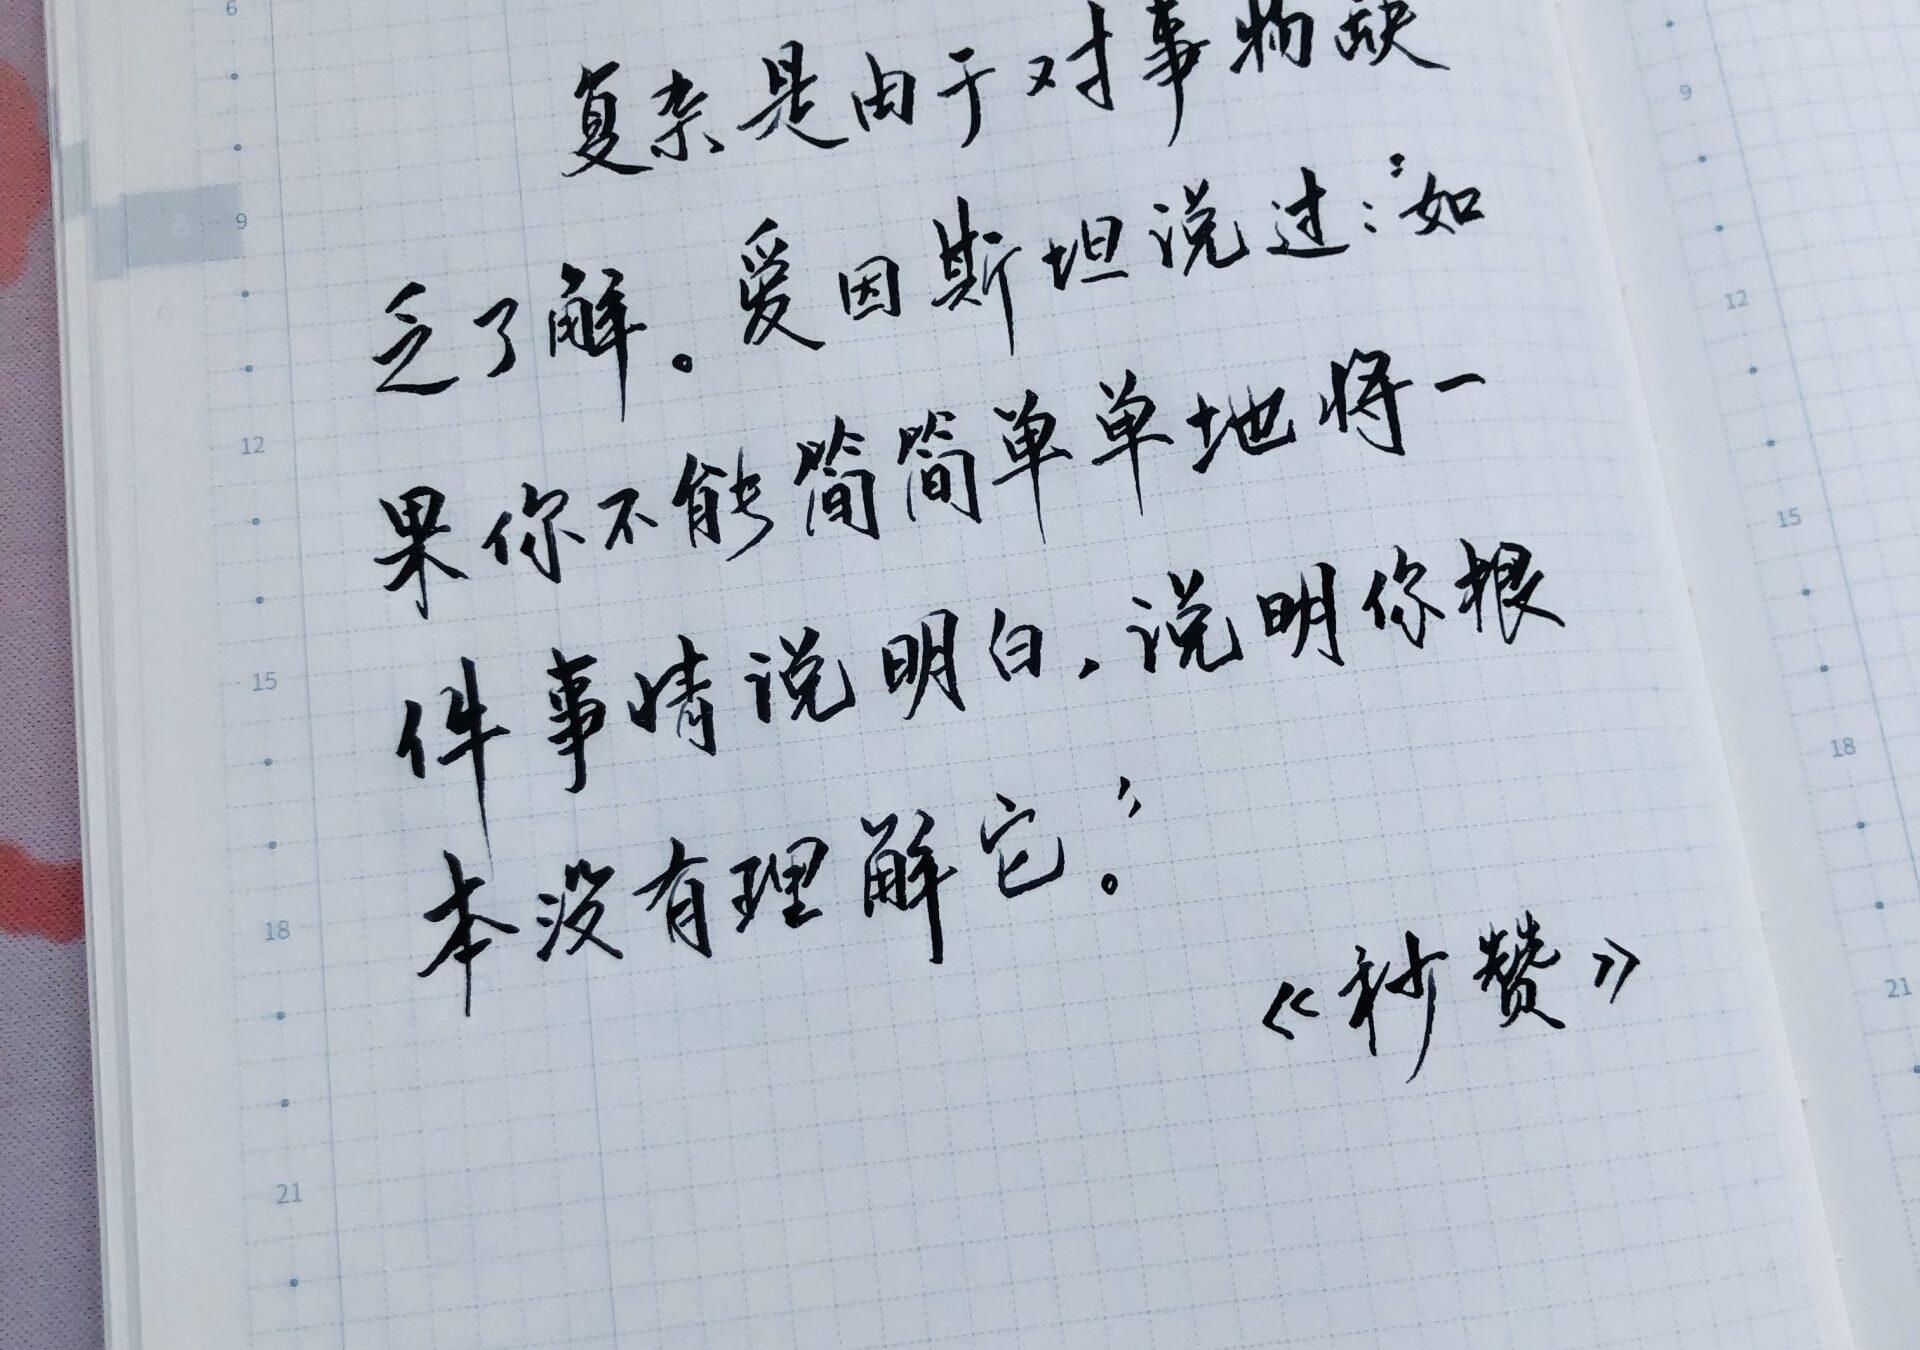 复杂是由于对事物缺
乏了解。爱因斯坦说过:“如
果你不能简简单单地将一
件事情说明白,说明你根
本没有理解它。”
《秒赞》
6
9
12
15
18
21
9
12
15
18
21